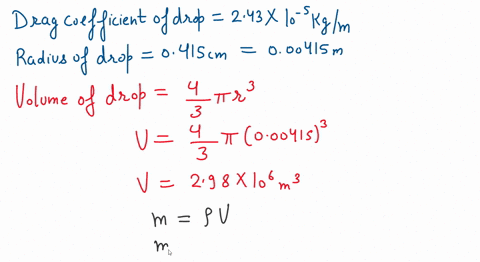 Drag coefficient of drop = 2.43 × 10⁻⁵ Kg/m
Radius of drop = 0.415cm = 0.00415m
Volume of drop = 4/3 πr³
V = 4/3 π (0.00415)³
V = 2.98 × 10⁶ m³
m = ρV
m